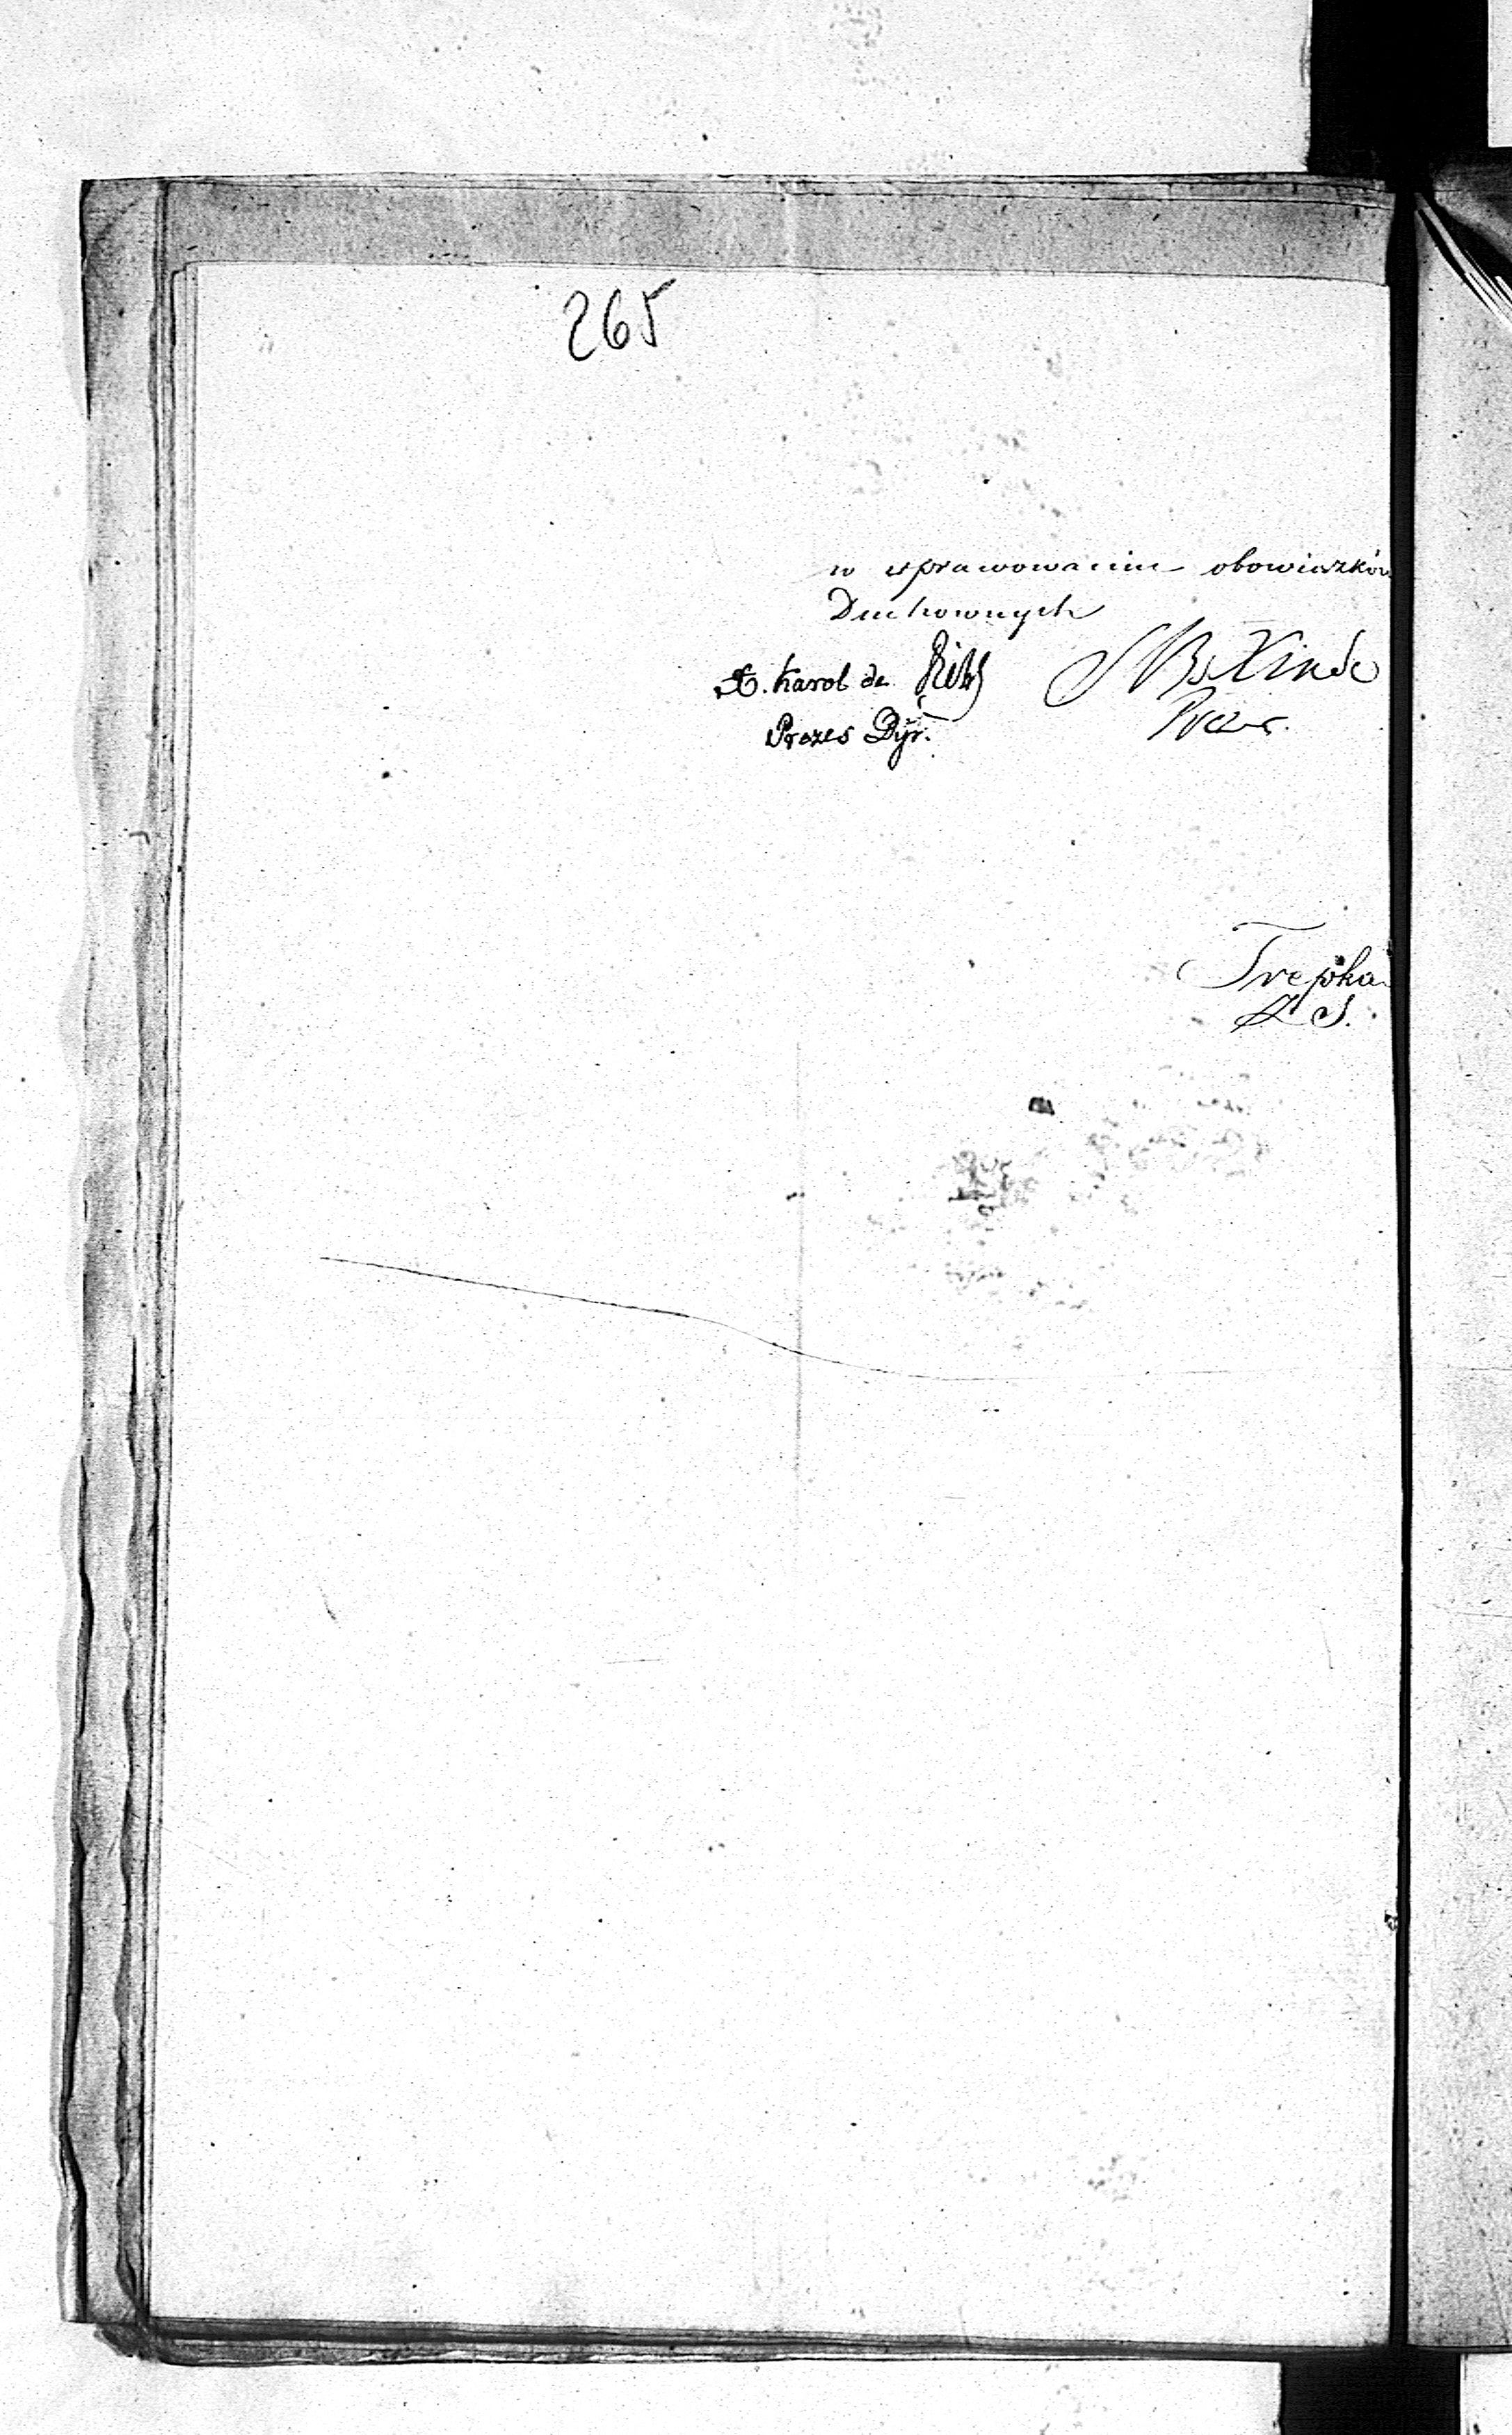 265
w sprawowaniu obowiązków
Duchownych
X. Karol de
Prezes Dyr.
S B Linde
Prezes.
Trepka
Z S.